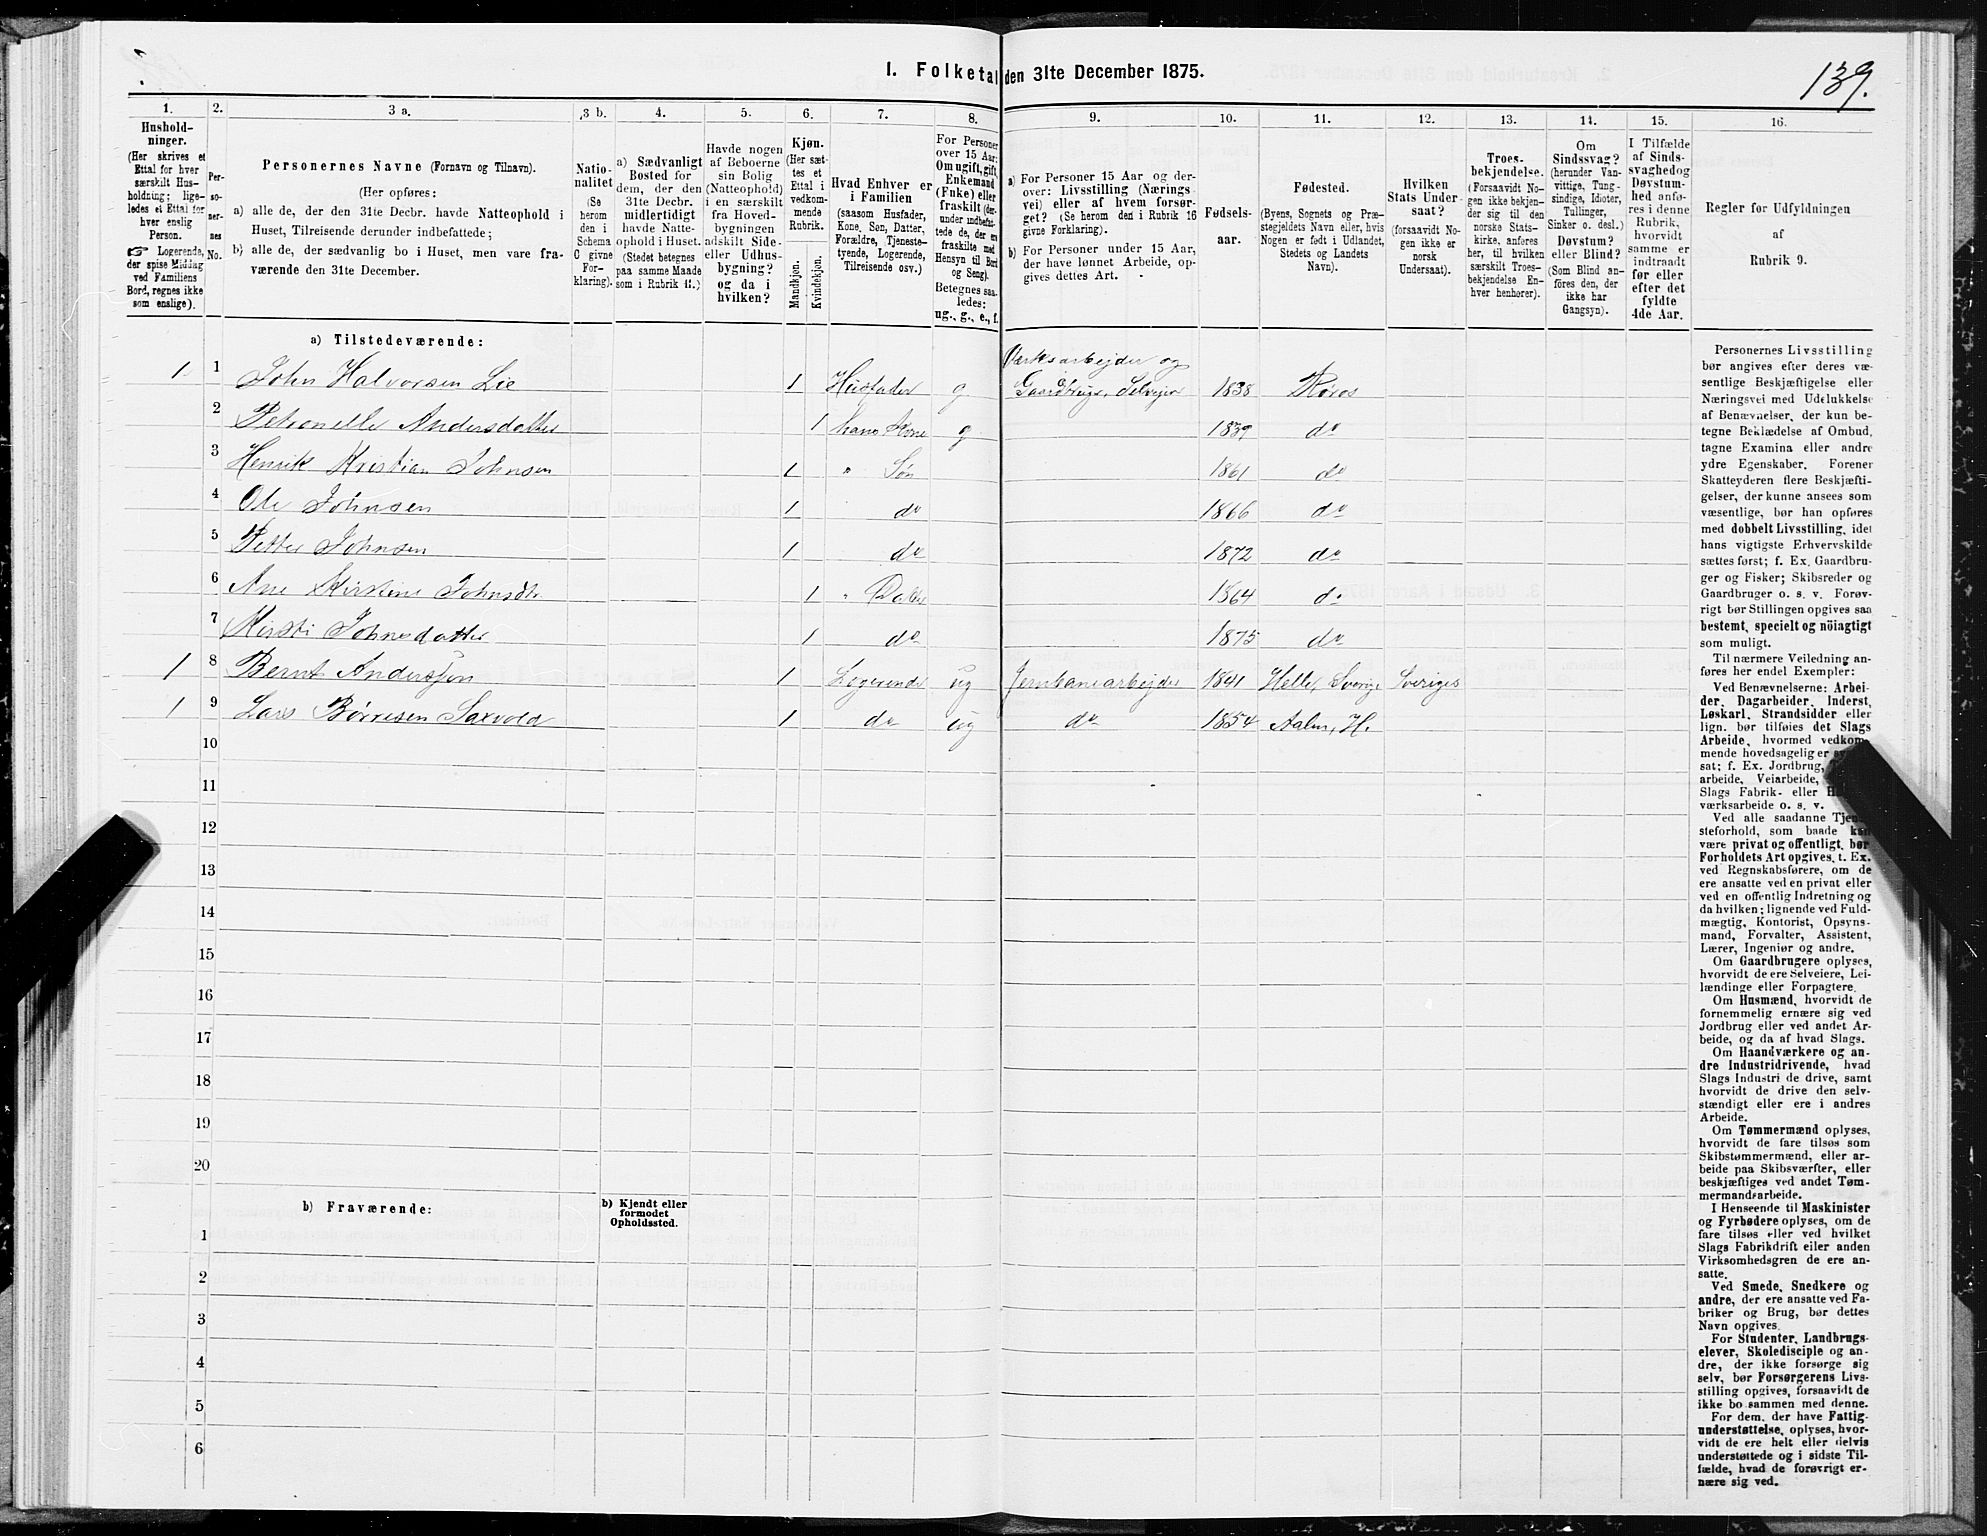 I. Folketal den 31te December 1875.
139.
1. 2. 3 a. 3 b. 4. 5. 6. 7. 8. 9. 10. 11. 12. 13. 14. 15. 16.
Hushold-
ninger.
(Her skrives et
Ettal for hver
særskilt Hus-
holdning; lige-
ledes et Ettal for
hver enslig
Person.
☞ Logerende,
der spise Middag
ved Familiens
Bord, regnes ikke
som enslige).
Per-
so-
ner-
nes
No.
Personernes Navne (Fornavn og Tilnavn).
(Her opføres:
a) alle de, der den 31te Decbr. havde Natteophold i
Huset, Tilreisende derunder indbefattede;
b) alle de, der sædvanlig bo i Huset, men vare fra-
værende den 31te December.
Natio-
nalitet
(Se
herom
den i
Schema
C givne
For-
klaring).
a) Sædvanligt
Bosted for
dem, der den
31te Decbr.
midlertidigt
havde Natte-
ophold i Huset.
(Stedet betegnes
paa samme Maade
som i Rubrik 11.)
Havde nogen
af Beboerne
sin Bolig
(Natteophold)
i en særskilt
fra Hoved-
bygningen
adskilt Side-
eller Udhus-
bygning?
og da i
hvilken?
Kjøn.
(Her sæt-
tes et
Ettal i
vedkom-
mende
Rubrik.
Mandkjøn.
Kvindekjøn.
Hvad Enhver er
i Familien
(saasom Husfader,
Kone, Søn, Datter,
Forældre, Tjeneste-
tyende, Logerende,
Tilreisende osv.)
For Personer
over 15 Aar:
Om ugift, gift,
Enkemand
(Enke) eller
fraskilt (der-
under indbefat-
tede de, der ere
fraskilte med
Hensyn til Bord
og Seng).
Betegnes saa-
ledes:
ug., g., e., f.
a) For Personer 15 Aar og der-
over: Livsstilling (Nærings-
vei) eller af hvem forsør-
get? (Se herom den i Rubrik 16
givne Forklaring).
b) For Personer under 15 Aar,
der have lønnet Arbeide, op-
gives dettes Art.
Fødsels-
aar.
Fødested.
(Byens, Sognets og Præ-
stegjeldets Navn eller, hvis
Nogen er født i Udlandet,
Stedets og Landets
Navn).
Hvilken
Stats Under-
saat?
(forsaavidt No-
gen ikke er
norsk
Undersaat).
Troes-
bekjendelse.
(Forsaavidt No-
gen ikke bekjen-
der sig til den
norske Stats-
kirke, anføres
her, til hvilken
særskilt Troes-
bekjendelse En-
hver henhører).
Om
Sindssvag?
(herunder Van-
vittige, Tung-
sindige, Idioter,
Tullinger,
Sinker o. desl.)
Døvstum?
eller Blind?
(Som Blind an-
føres den, der
ikke har
Gangsyn).
I Tilfælde
af Sinds-
svaghed og
Døvstum-
hed anfø-
res i denne
Rubrik,
hvorvidt
samme er
indtraadt
før eller
efter det
fyldte
4de Aar.
Regler for Udfyldningen
af
Rubrik 9.
a) Tilstedeværende:
Værksarbejder og
1 1 John Halvorsen Lie 1 Husfader g. Gaardbrug, Selvejer 1838 Røros
2 Petronelle Andersdatter 1 hans Kone g 1839 do
3 Henrik Kristian Johnsen 1 " Søn 1861 do
4 Ole Johnsen 1 do 1866 do
5 Petter Johnsen 1 do 1872 do
6 Ane Kirstine Johnsdtr 1 " Datter 1864 do
7 Kirsti Johnsdatter 1 do 1875 do
1 8 Bernt Anderssen 1 Logerende ug Jernbanearbejder 1841 Helle, Sverige Sveriges
1 9 Lars Børresen Saxvold 1 do ug do 1854 Aalen, H.
10
11
12
13
14
15
16
17
18
19
20
b) Fraværende:
b) Kjendt eller
formodet
Opholdssted.
1
2
3
4
5
6
Personernes Livsstilling
bør angives efter deres væ-
sentlige Beskjæftigelse eller
Næringsvei med Udelukkelse
af Benævnelser, der kun be-
tegne Beklædelse af Ombud,
tagne Examina eller andre
ydre Egenskaber. Forener
Skatteyderen flere Beskjæfti-
gelser, der kunne ansees som
væsentlige, bør han opføres
med dobbelt Livsstilling, idet
hans vigtigste Erhvervskilde
sættes først; f. Ex. Gaardbru-
ger og Fisker; Skibsreder og
Gaardbruger o. s. v. Forøv-
rigt bør Stillingen opgives saa
bestemt, specielt og nöiagtigt
som muligt.
Til nærmere Veiledning an-
føres her endel Exempler:
Ved Benævnelserne: Arbei-
der, Dagarbeider, Inderst,
Løskarl, Strandsidder eller
lign. bør tilføies det Slags
Arbeide, hvormed vedkom-
mende hovedsagelig er sys-
sat; f. Ex. Jordbrug,
arbeide, Veiarbeide,
Slags Fabrik- eller
værksarbeide o. s. v.
Ved alle saadanne Tjene-
steforhold, som baade kan
være privat og offentligt, bør
Forholdets Art opgives, t. Ex.
ved Regnskabsførere, om de
ere ansatte ved en privat eller
ved en offentlig Indretning og
da hvilken; lignende ved Fuld-
mægtig, Kontorist, Opsyns-
mand, Forvalter, Assistent,
Lærer, Ingeniør og andre.
Om Gaardbrugere oplyses,
hvorvidt de ere Selveiere, Lei-
lændinge eller Forpagtere.
Om Husmænd, hvorvidt de
fornemmelig ernære sig ved
Jordbrug eller ved andet Ar-
beide, og da af hvad Slags.
Om Haandværkere og an-
dre Industridrivende, hvad
Slags Industri de drive, samt
hvorvidt de drive den selv-
stændigt eller ere i andres
Arbeide.
Om Tømmermænd oplyses,
hvorvidt de fare tilsøs som
Skibstømmermænd, eller ar-
beide paa Skibsværfter, eller
beskjæftiges ved andet Tøm-
mermandsarbeide.
I Henseende til Maskinister
og Fyrbødere oplyses, om de
fare tilsøs eller ved hvilket
Slags Fabrikdrift eller anden
Virksomhedsgren de ere an-
satte.
Ved Smede, Snedkere og
andre, der ere ansatte ved Fa-
briker og Brug, bør dettes
Navn opgives.
For Studenter, Landbrugs-
elever, Skoledisciple og an-
dre, der ikke forsørge sig
selv, bør Forsørgerens Livs-
stilling opgives, forsaavidt de
ikke bo sammen med denne.
For dem, der have Fattig-
understøttelse, oplyses, hvor-
vidt de ere helt eller delvis
understøttede og i sidste Til-
fælde, hvad de forøvrigt er-
nære sig ved.